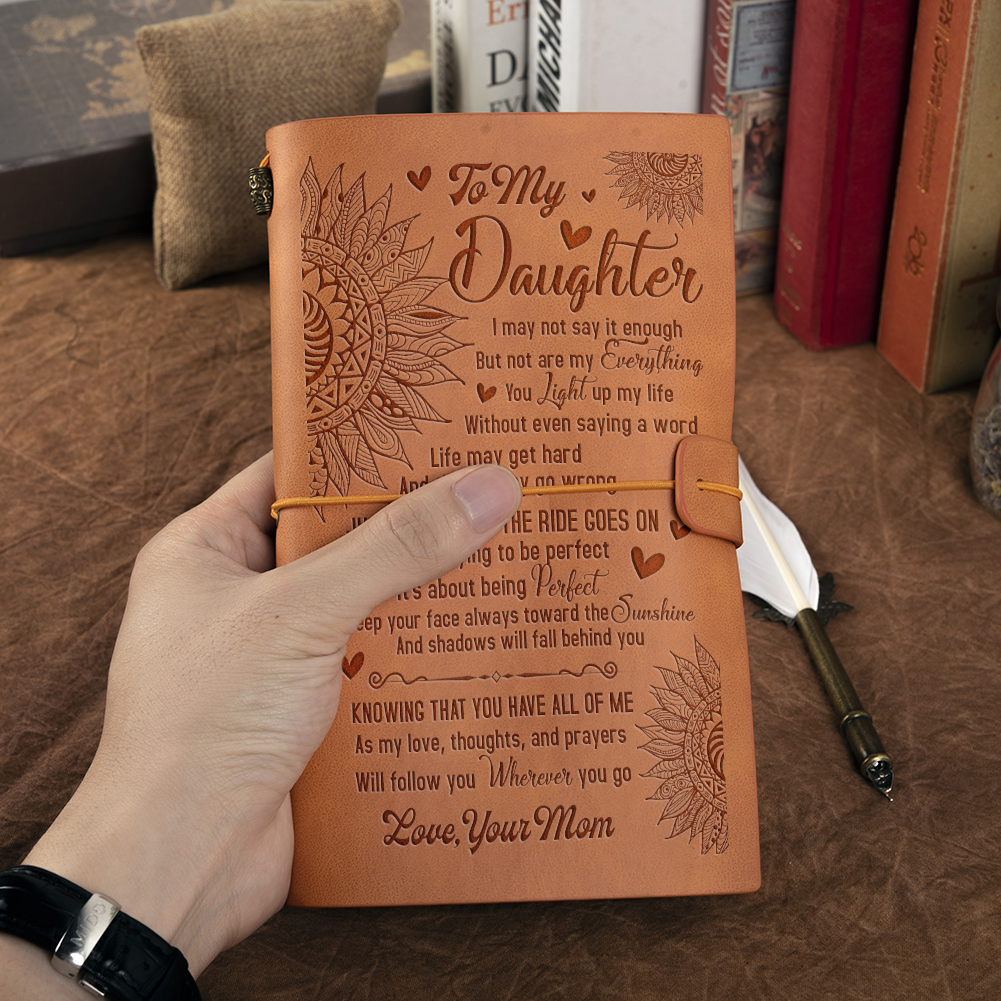 To My
Daughter
I may not say it enough
But not are my Everything
You Light up my life
Without even saying a word
Life may get hard
go wrong
THE RIDE GOES ON
to be perfect
It's about being Perfect
your face always toward the Sunshine
And shadows will fall behind you
KNOWING THAT YOU HAVE ALL OF ME
As my love, thoughts, and prayers
Will follow you Wherever you go
Love, Your Mom
MICHAE
MIDO